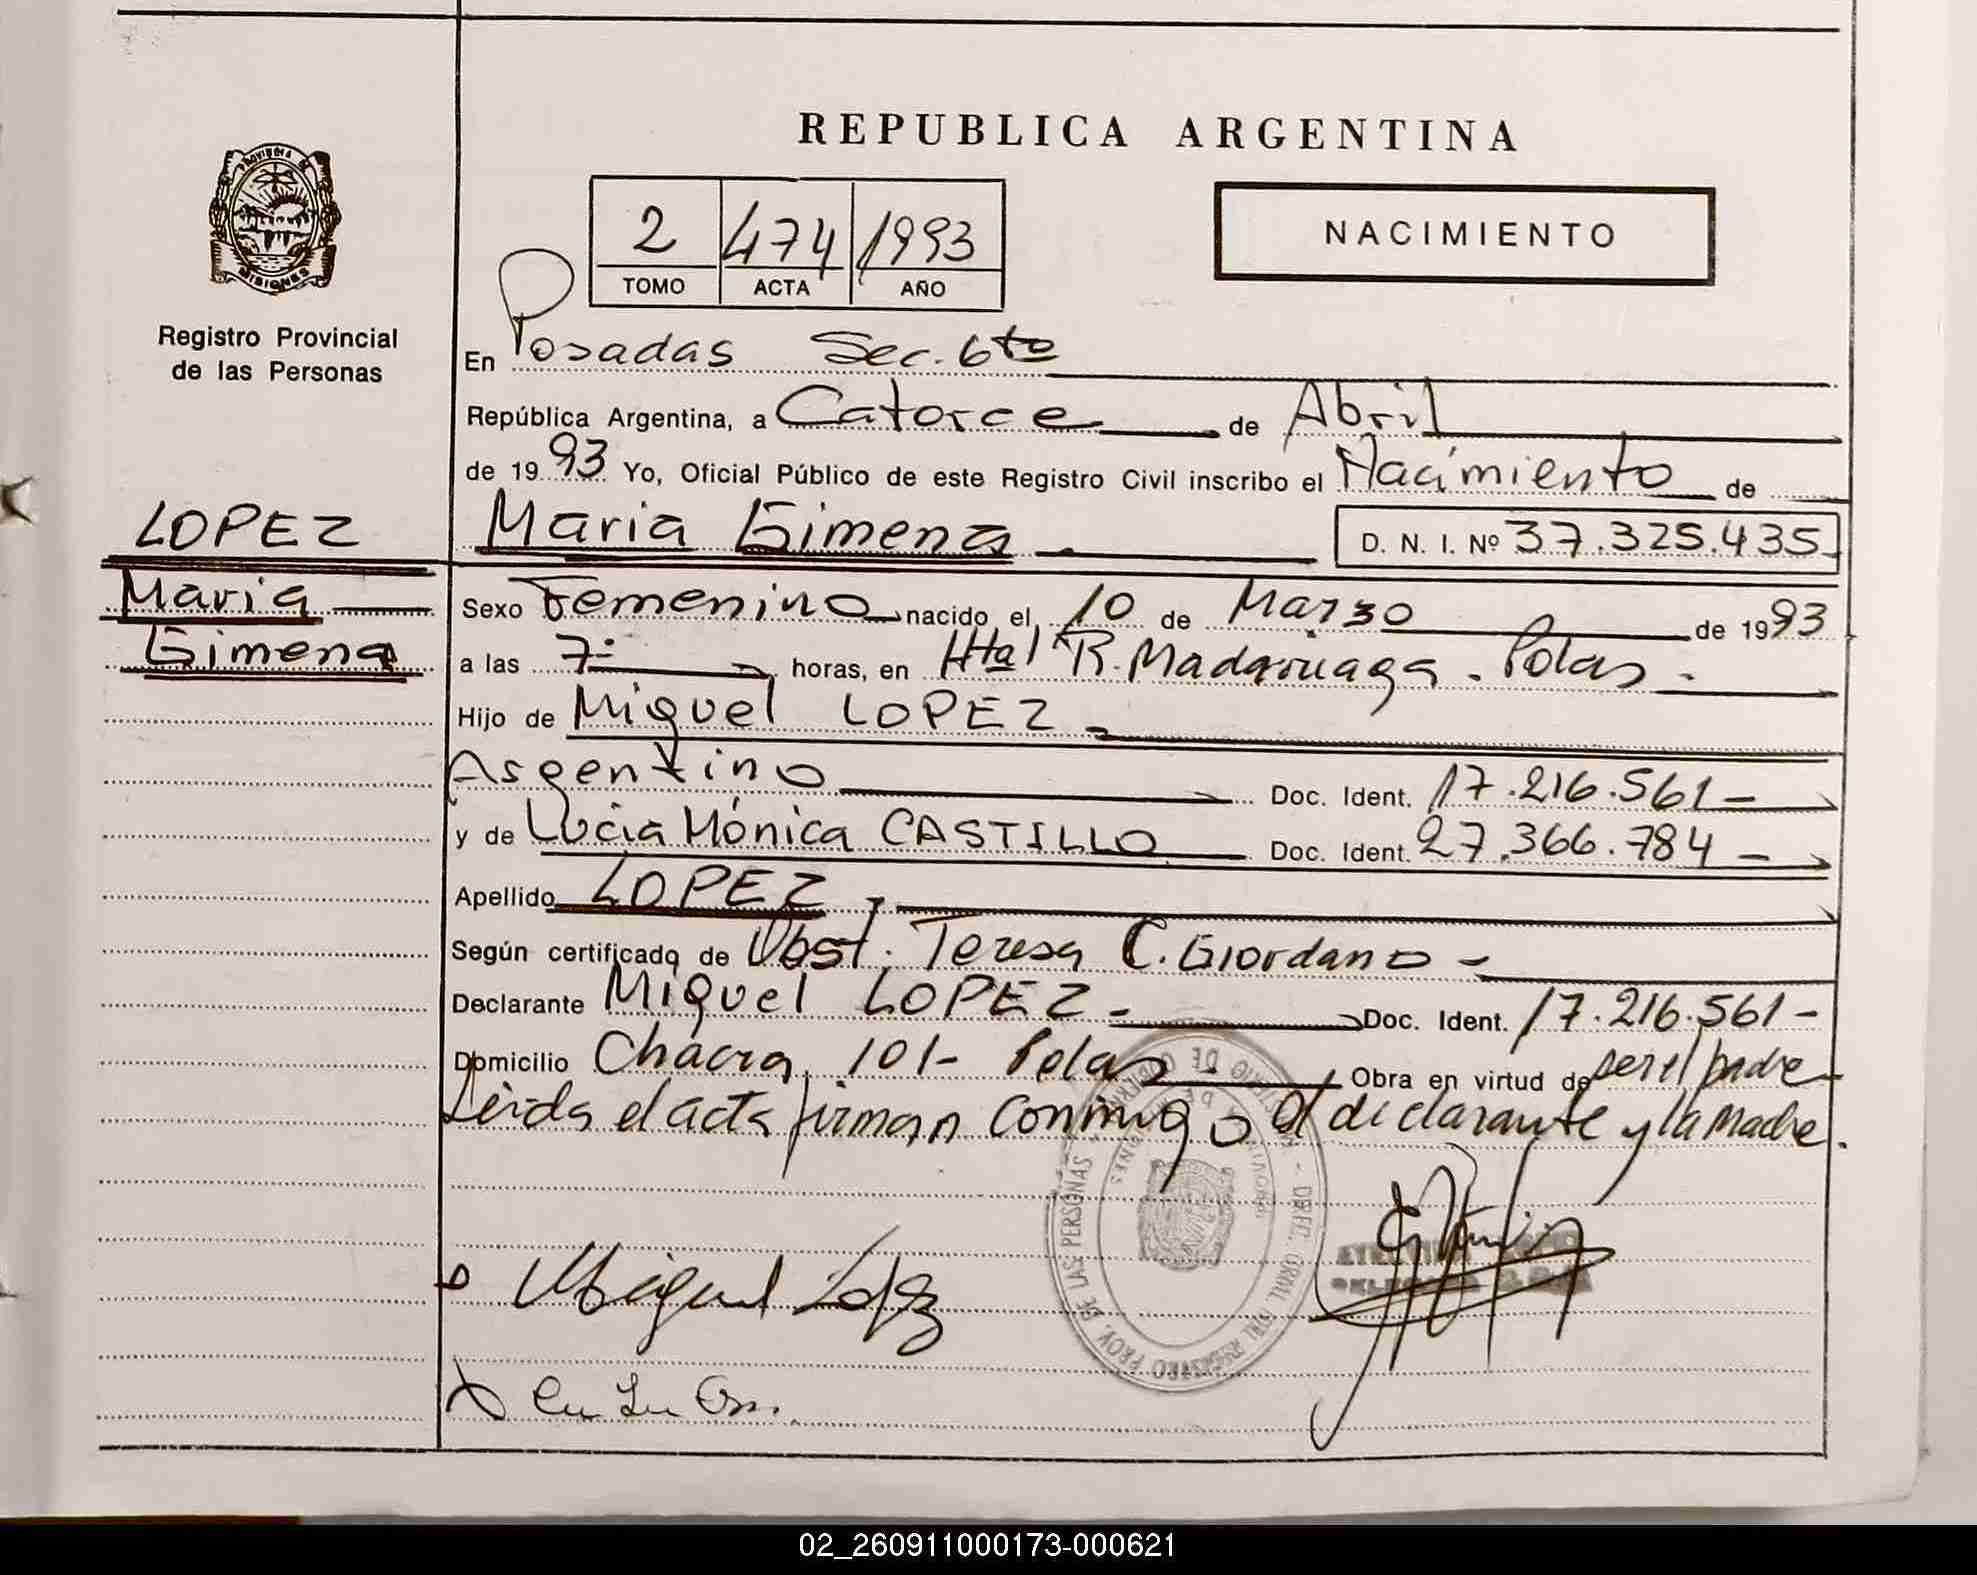 REPUBLICA ARGENTINA
PROVINCIA DE
MISIONES
Registro Provincial
de las Personas
2 474 1993
TOMO ACTA AÑO
NACIMIENTO
En Posadas Sec. 6ta
República Argentina, a Catorce de Abril
de 1993 Yo, Oficial Público de este Registro Civil inscribo el Nacimiento de
LOPEZ
Maria Gimena D. N. I. Nº 37.325.435
Maria
Gimena
Sexo Femenino nacido el 10 de Marzo de 1993
a las 7:- horas, en Htal R. Madariaga. Pdas.
Hijo de Miguel LOPEZ
Argentino Doc. Ident. 17.216.561-
y de Lucia Mónica CASTILLO Doc. Ident. 27.366.784-
Apellido LOPEZ
Según certificado de Obst. Teresa C. Giordano -
Declarante Miguel LOPEZ.- Doc. Ident. 17.216.561-
Domicilio Chacra 101- Pdas Obra en virtud de ser el padre
Leida el acta firman conmigo el declarante y la Madre.
REGISTRO PROV. DE LAS PERSONAS
Miguel Lopez
02_260911000173-000621